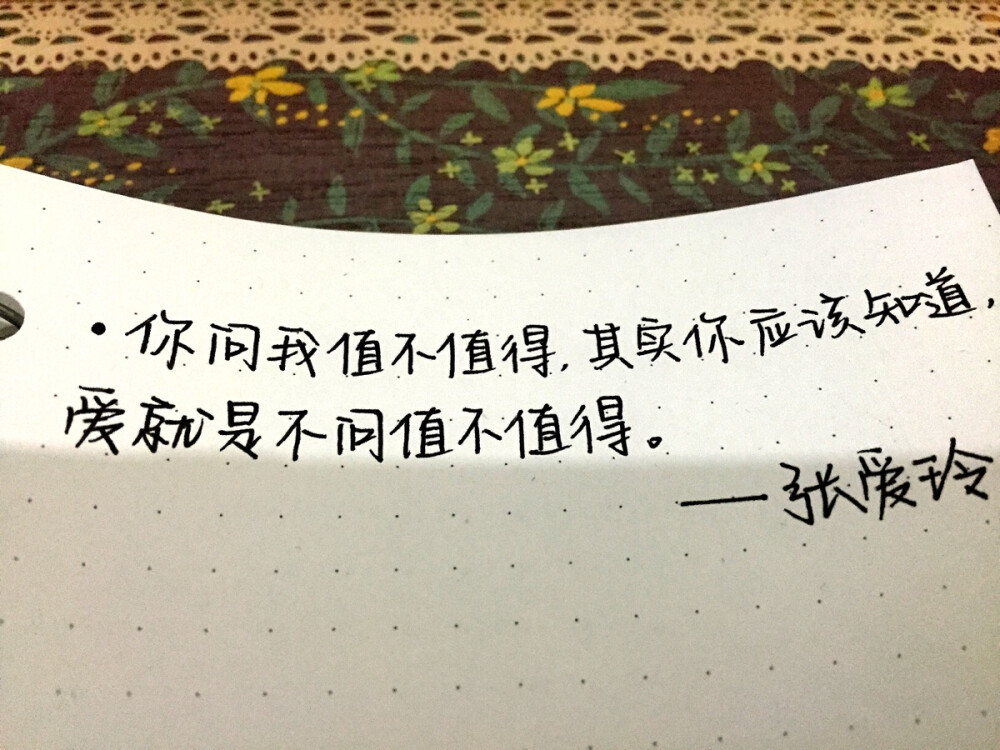 ·你问我值不值得,其实你应该知道,
爱就是不问值不值得。
——张爱玲